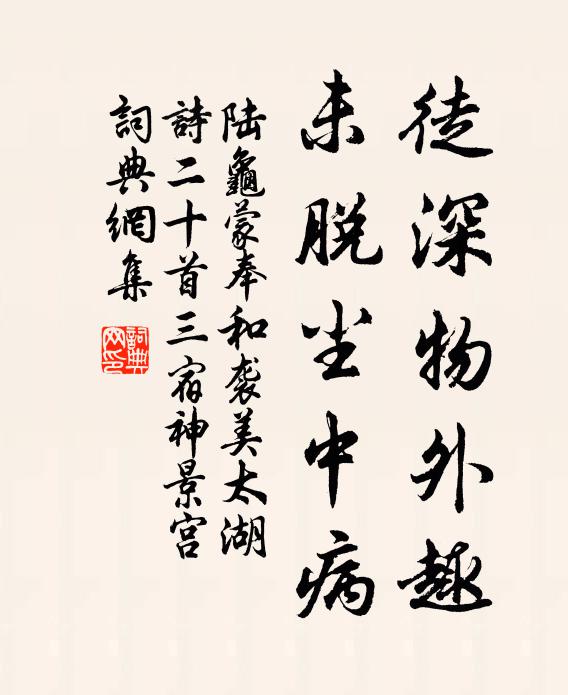 徒深物外趣
未脱尘中病
陆龜蒙奉和袭美太湖
詩二十首三宿神景宫
詞典網集
詞典网印